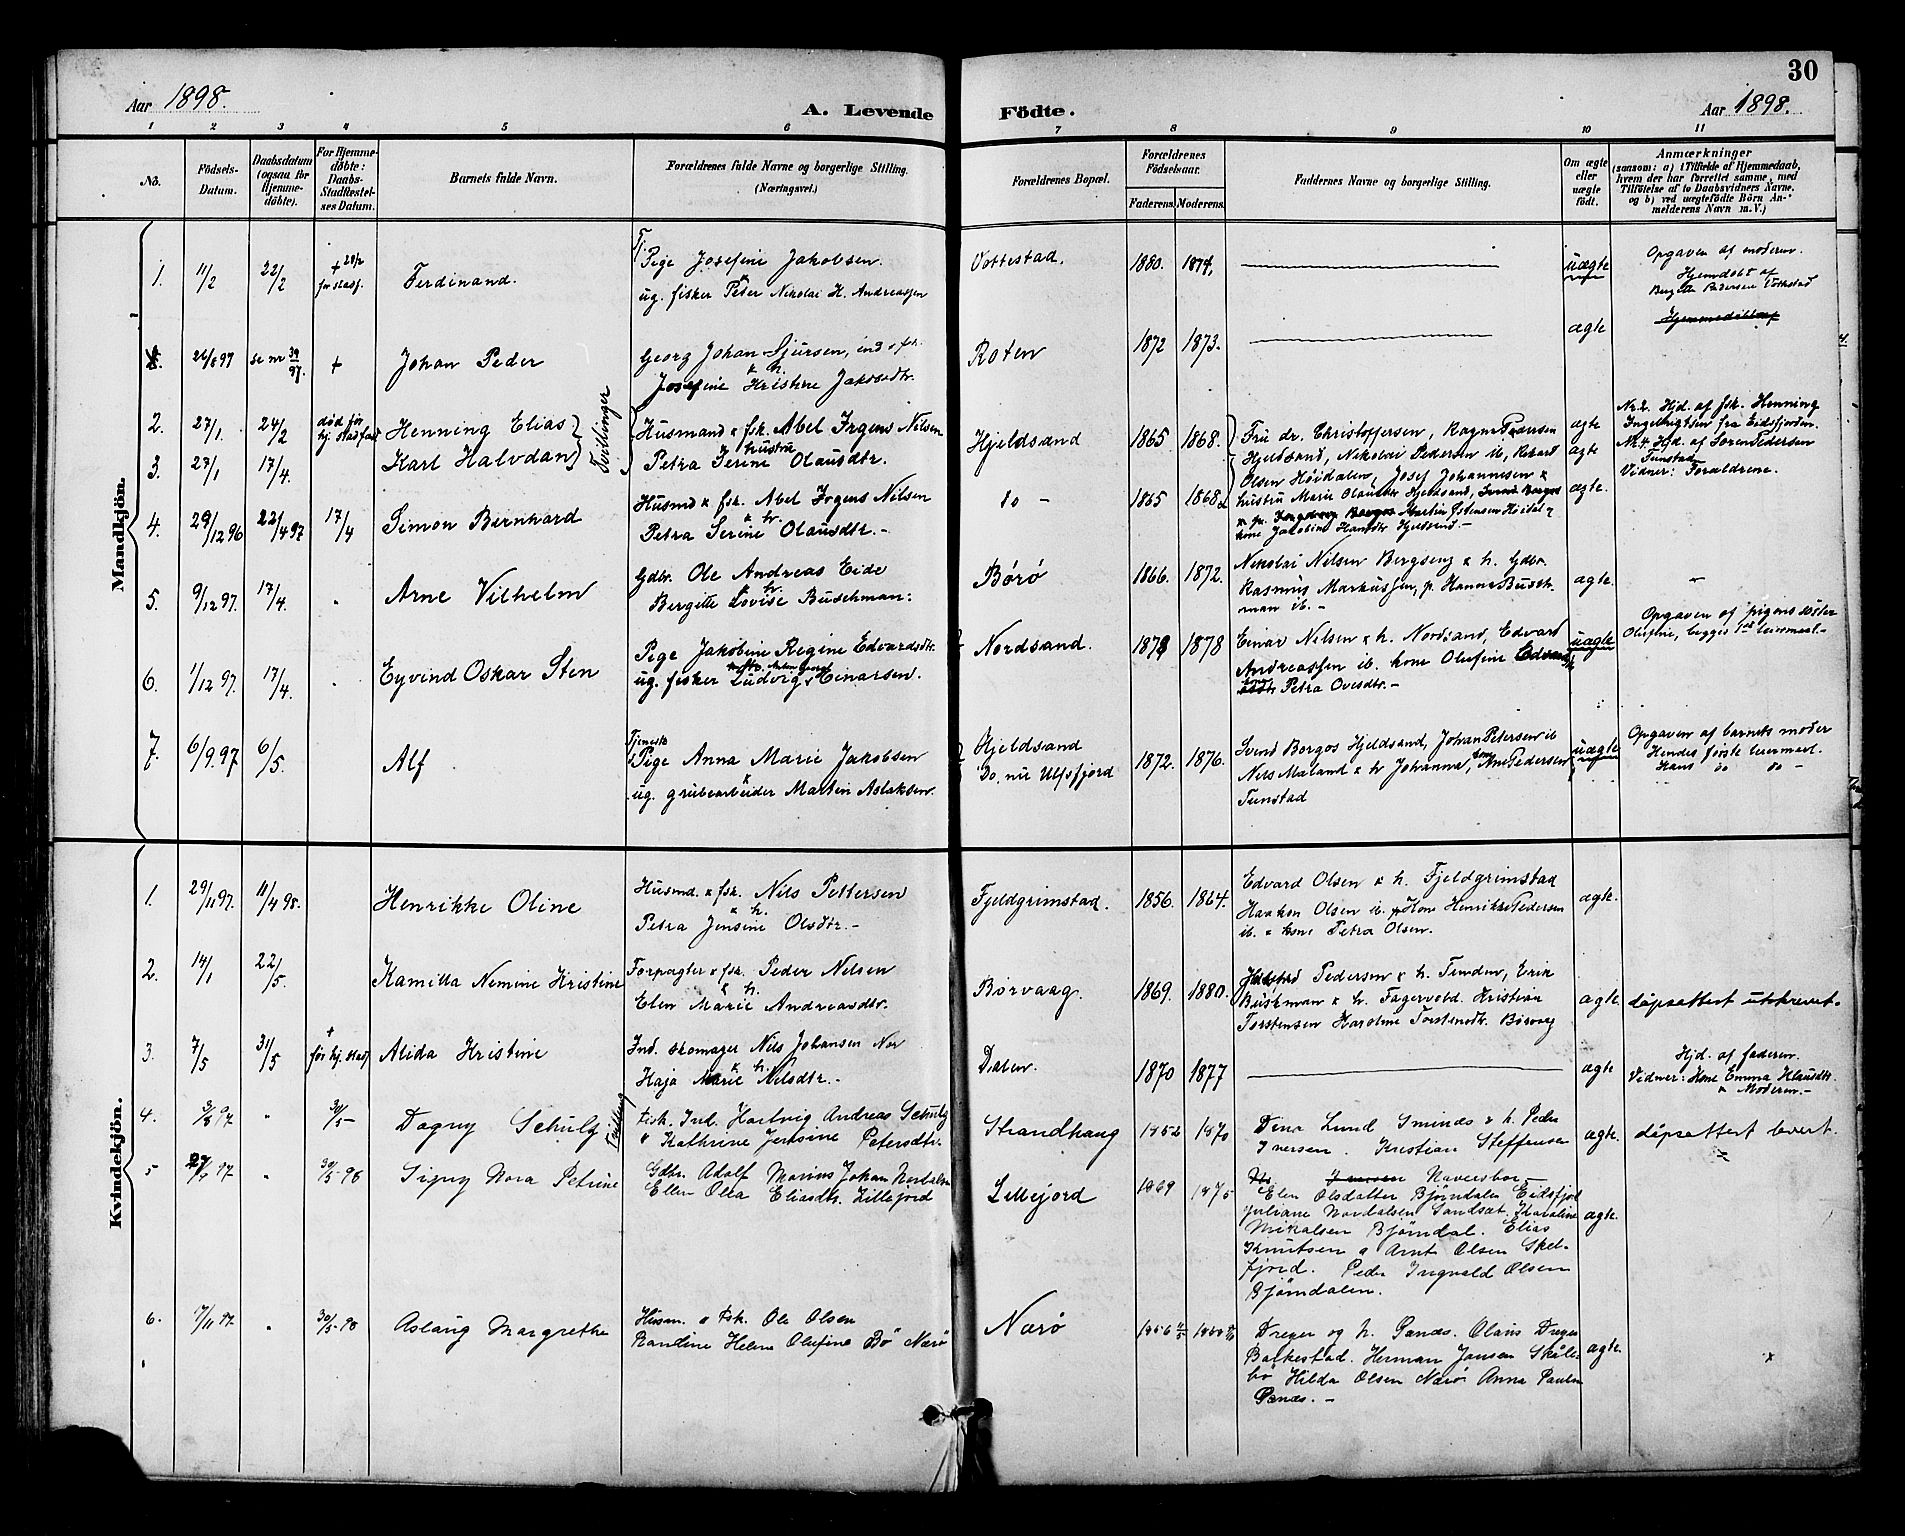 30
Aar 1898.
A. Levende Födte.
Aar 1898.
1 2 3 4 5 6 7 8 9 10 11
No.
Födsels-Datum.
Daabsdatum (ogsaa for Hjemme-döbte).
For Hjemme-döbte: Daabs-Stadfæstel-ses Datum.
Barnets fulde Navn.
Forældrenes fulde Navne og borgerlige Stilling. (Næringsvei.)
Forældrenes Bopæl.
Forældrenes Födselsaar.
Faderens. Moderens.
Faddernes Navne og borgerlige Stilling.
Om ægte eller uægte födt.
Anmærkninger
(saasom: a) i Tilfælde af Hjemmedaab,
hvem der har forrettet samme, med
Tilföielse af to Daabsvidners Navne,
og b) ved uægtefödte Börn An-
melderens Navn m. V.)
Mandkjön.
1. 11/2 22/2 + før stadf. Ferdinand.
Pige Josefine Jakobsen
ug. fisker Peder Nikolai H. Andreassen
Vottestad. 1880. 1874, uægte
Opgaven af moderen.
Hjemdøbt af
Pedersen Vottestad
26/8 97 se nr 39/97. + Johan Peder
Georg Johan Sjursen, ind. & fsk.
& h.
Josefine Kristine Jakobsdtr.
Roten 1872 1873. ægte
2. 27/1. 24/2 død før hj. stadfæst Henning Elias
3. 27/1 17/4. Karl Halvdan
Tvillinger
Husmand & fsk. Abel Jrgens Nilsen
hustru
Petra Serine Olausdtr.
Hjeldsand 1865 1868. ægte ægte
Fru dr. Christoffersen, Ragna Pedersen
Hjeldsand, Nikolai Pedersen ib, Rikard
Olsen Høidalen, Josef Johannesen &
hustru Marie Olausdtr Hjeldsand,
Nr. 2. Hjd. af fsk. Henning
Ingebrigtsen fra Eidsfjorden.
Nr. 4. Hjd. af Søren Pedersen
Tunstad
Vidner: Forældrene.
4. 29/12 96 22/4 97 17/4 Simon Bernhard
Husmd & fsk. Abel Jrgens Nilsen
& h.
Petra Serine Olausdtr. -
do - 1865 1868 ægte.
kone Jakobine Hansdtr Hjeldsand -
5. 9/12 97. 17/4. " Arne Vilhelm
Gdbr. Ole Andreas Eide
& h.
Bergitte Lovise Buschman:
Børø 1866. 1872. ægte. -
Nikolai Nilsen Bergseng & h. Gdbr.
Rasmus Markussen, p. Hanna Busch-
man ib. -
6. 1/12 97. 17/4. " Eyvind Oskar Sten
Pige Jakobine Regine Edvardsdtr.
ug. fisker Ludvig Einarsen.
Nordsand. 1878 uægte
Einar Nilsen & h. Nordsand, Edvard
Andreassen ib. kone Olufine
Petra Ovesdtr. -
Opgaven af pigens søster
Olufine, begges 1ste leiermaal. -
7. 6/9. 97 6/5. Alf
Tjeneste
Pige Anna Marie Jakobsen
&
ug. grubearbeider Martin Aslaksen.
Hjeldsand
Do. nu Ulfsfjord
1872. 1876. uægte
Svend Borgos Hjeldsand, Johan Petersen ib
Nils Maland & h Johanna, Ane Pedersen
Tunstad
Opgaven af barnets moder
Hendes første leiermaal.
Hans do do -
Kvindekjön.
1. 29/11 97. 11/4 98. Henrikke Oline
Husmd. & fsk. Nils Pettersen
& h.
Petra Jensine Olsdtr. -
Fjeldgrimstad. 1856. 1864. ægte.
Edvard Olsen & h. Fjeldgrimstad
Haakon Olsen ib. Kone Henrikke Pedersen
ib. & kone Petra Olsen.
2. 14/1 22/5. Kamilla Nemine Kristine
Forpagter & fsk. Peder Nilsen
& h.
Elen Marie Andreasdtr.
Borvaag. 1869. 1880. ægte.
Pedersen & h. Tunden, Erik
Buskman & h. Fagervold. Kristian
Torstensen Karoline Torstensdtr. Börvaag
døpsattert utskrevet.
3. 7/5 31/5 + før hj. stadf Alida Kristine
Ind. skomager Nils Johansen Nor
& h.
Kaja Marie Nilsdtr. -
Dalen. 1870 1877 ægte.
Hjd. af faderen.
Vidner: Kone Emma Klausdtr.
& Moderen. -
4. 3/8 97 " 30/5 - Dagny Schulz
Fisk. Ind. Hartvig Andreas Schulz
" Kathrine Jensine Petersdtr.
Strandhaug 1852 1870 ægte.
Dina Lund Smines & h. Peder
Iversen. Kristian Steffensen
døpsattert levert.
5 97 " 30/5 - 98 Signy Nora Petrine
Gdbr. Adolf Marius Johan Nordalsen
Ellen Olea Eliasdtr. Lillejord
Lillejord 1869 1875 ægte.
Naversbor -
Elen Olsdatter Bjørndalen Eidsfjord
Juliane Nordalsen Sandsæt. Karoline
Mikalsen Bjørndal. Elias
Knutsen & Arnt Olsen Skel-
fjord. Peder Ingvald Olsen
Bjørndalen.
6. 7/11 97. " 30/5 - 98 Aslaug Margrethe
Husm. & Fsk. Ole Olsen
Randine Helene Olufine Bö Nærö
Nærö 1856 1860 ægte.
Dreyer og h. Sanäs. Olaus Dreyer
Balkestad. Herman Jansen Skåle-
bø Hilda Olsen Nærö Anna Paulsen
Sanäs. -